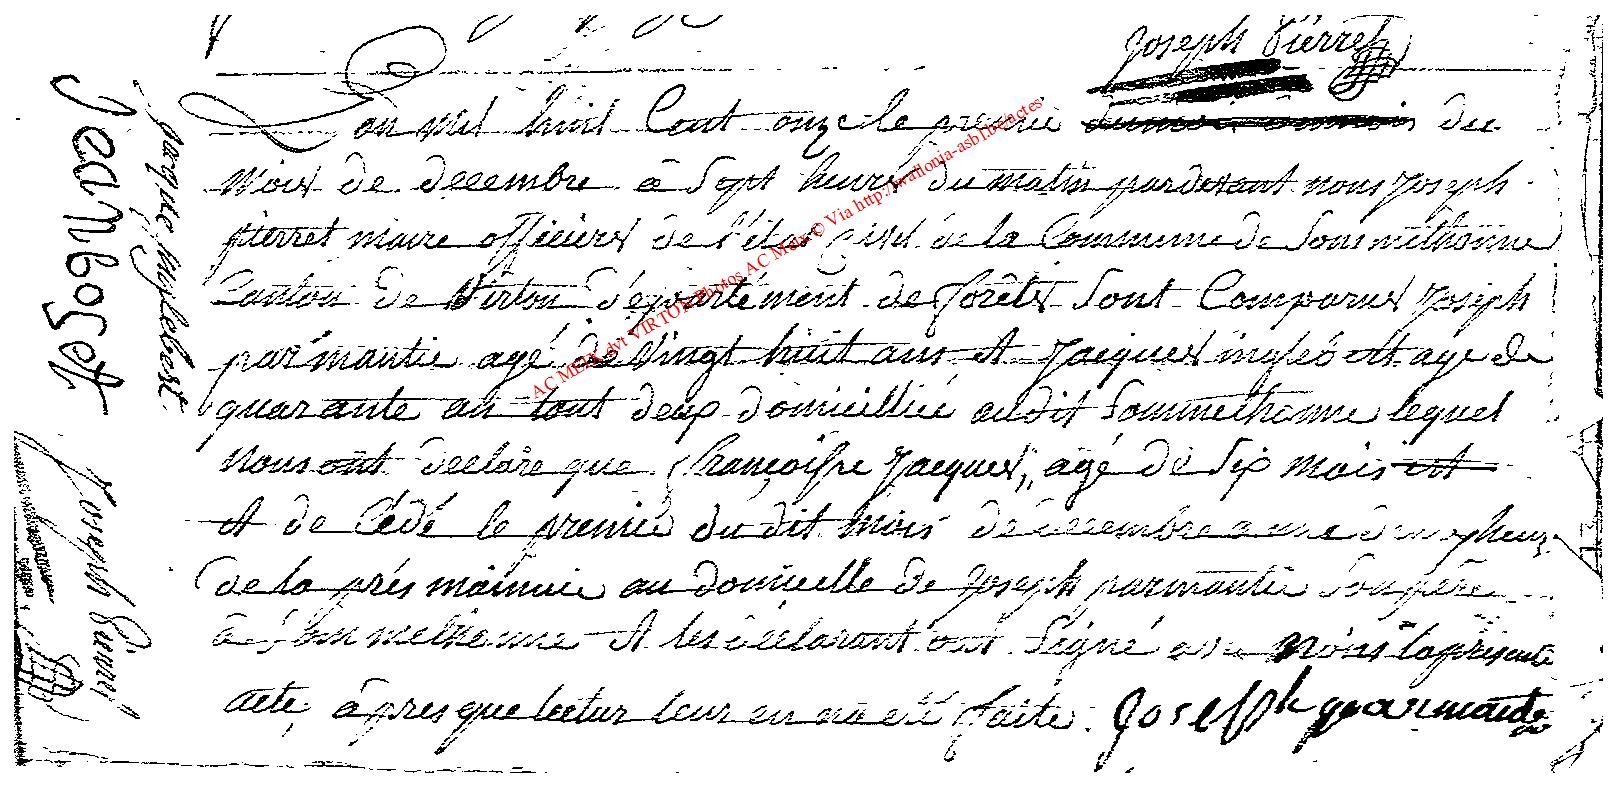 Joseph Pierret
L'an mil huit Cent onze le premie du
mois de decembre à Sept heures du matin pardevant nous Joseph
pierret maire officiers de l'état civil de la Commune de Sommethonne
Canton de Virton département de forêts Sont Comparus Joseph
parmantie agé de Vingt huit ans et Jacques inglebert age de
quarante an tout deux domicillié audit Sommethonne lequel
nous ont declare que françoisse Jacques, agé de Six mois
et de Cédé le premie du dit mois de decembre a une heur
de la prés mainuie au domicelle de Joseph parmantie Son père
à Sommethonne et les déclarant ont Signé avec nous la présente
acte, à pres que lectur leur en na eté faite. Joseph parmantie
Jean
Jacque inglebert
Joseph Pierret
AC MEIX dvt VIRTON Photos AC Meix © Via http://wallonia-asbl.be/actes